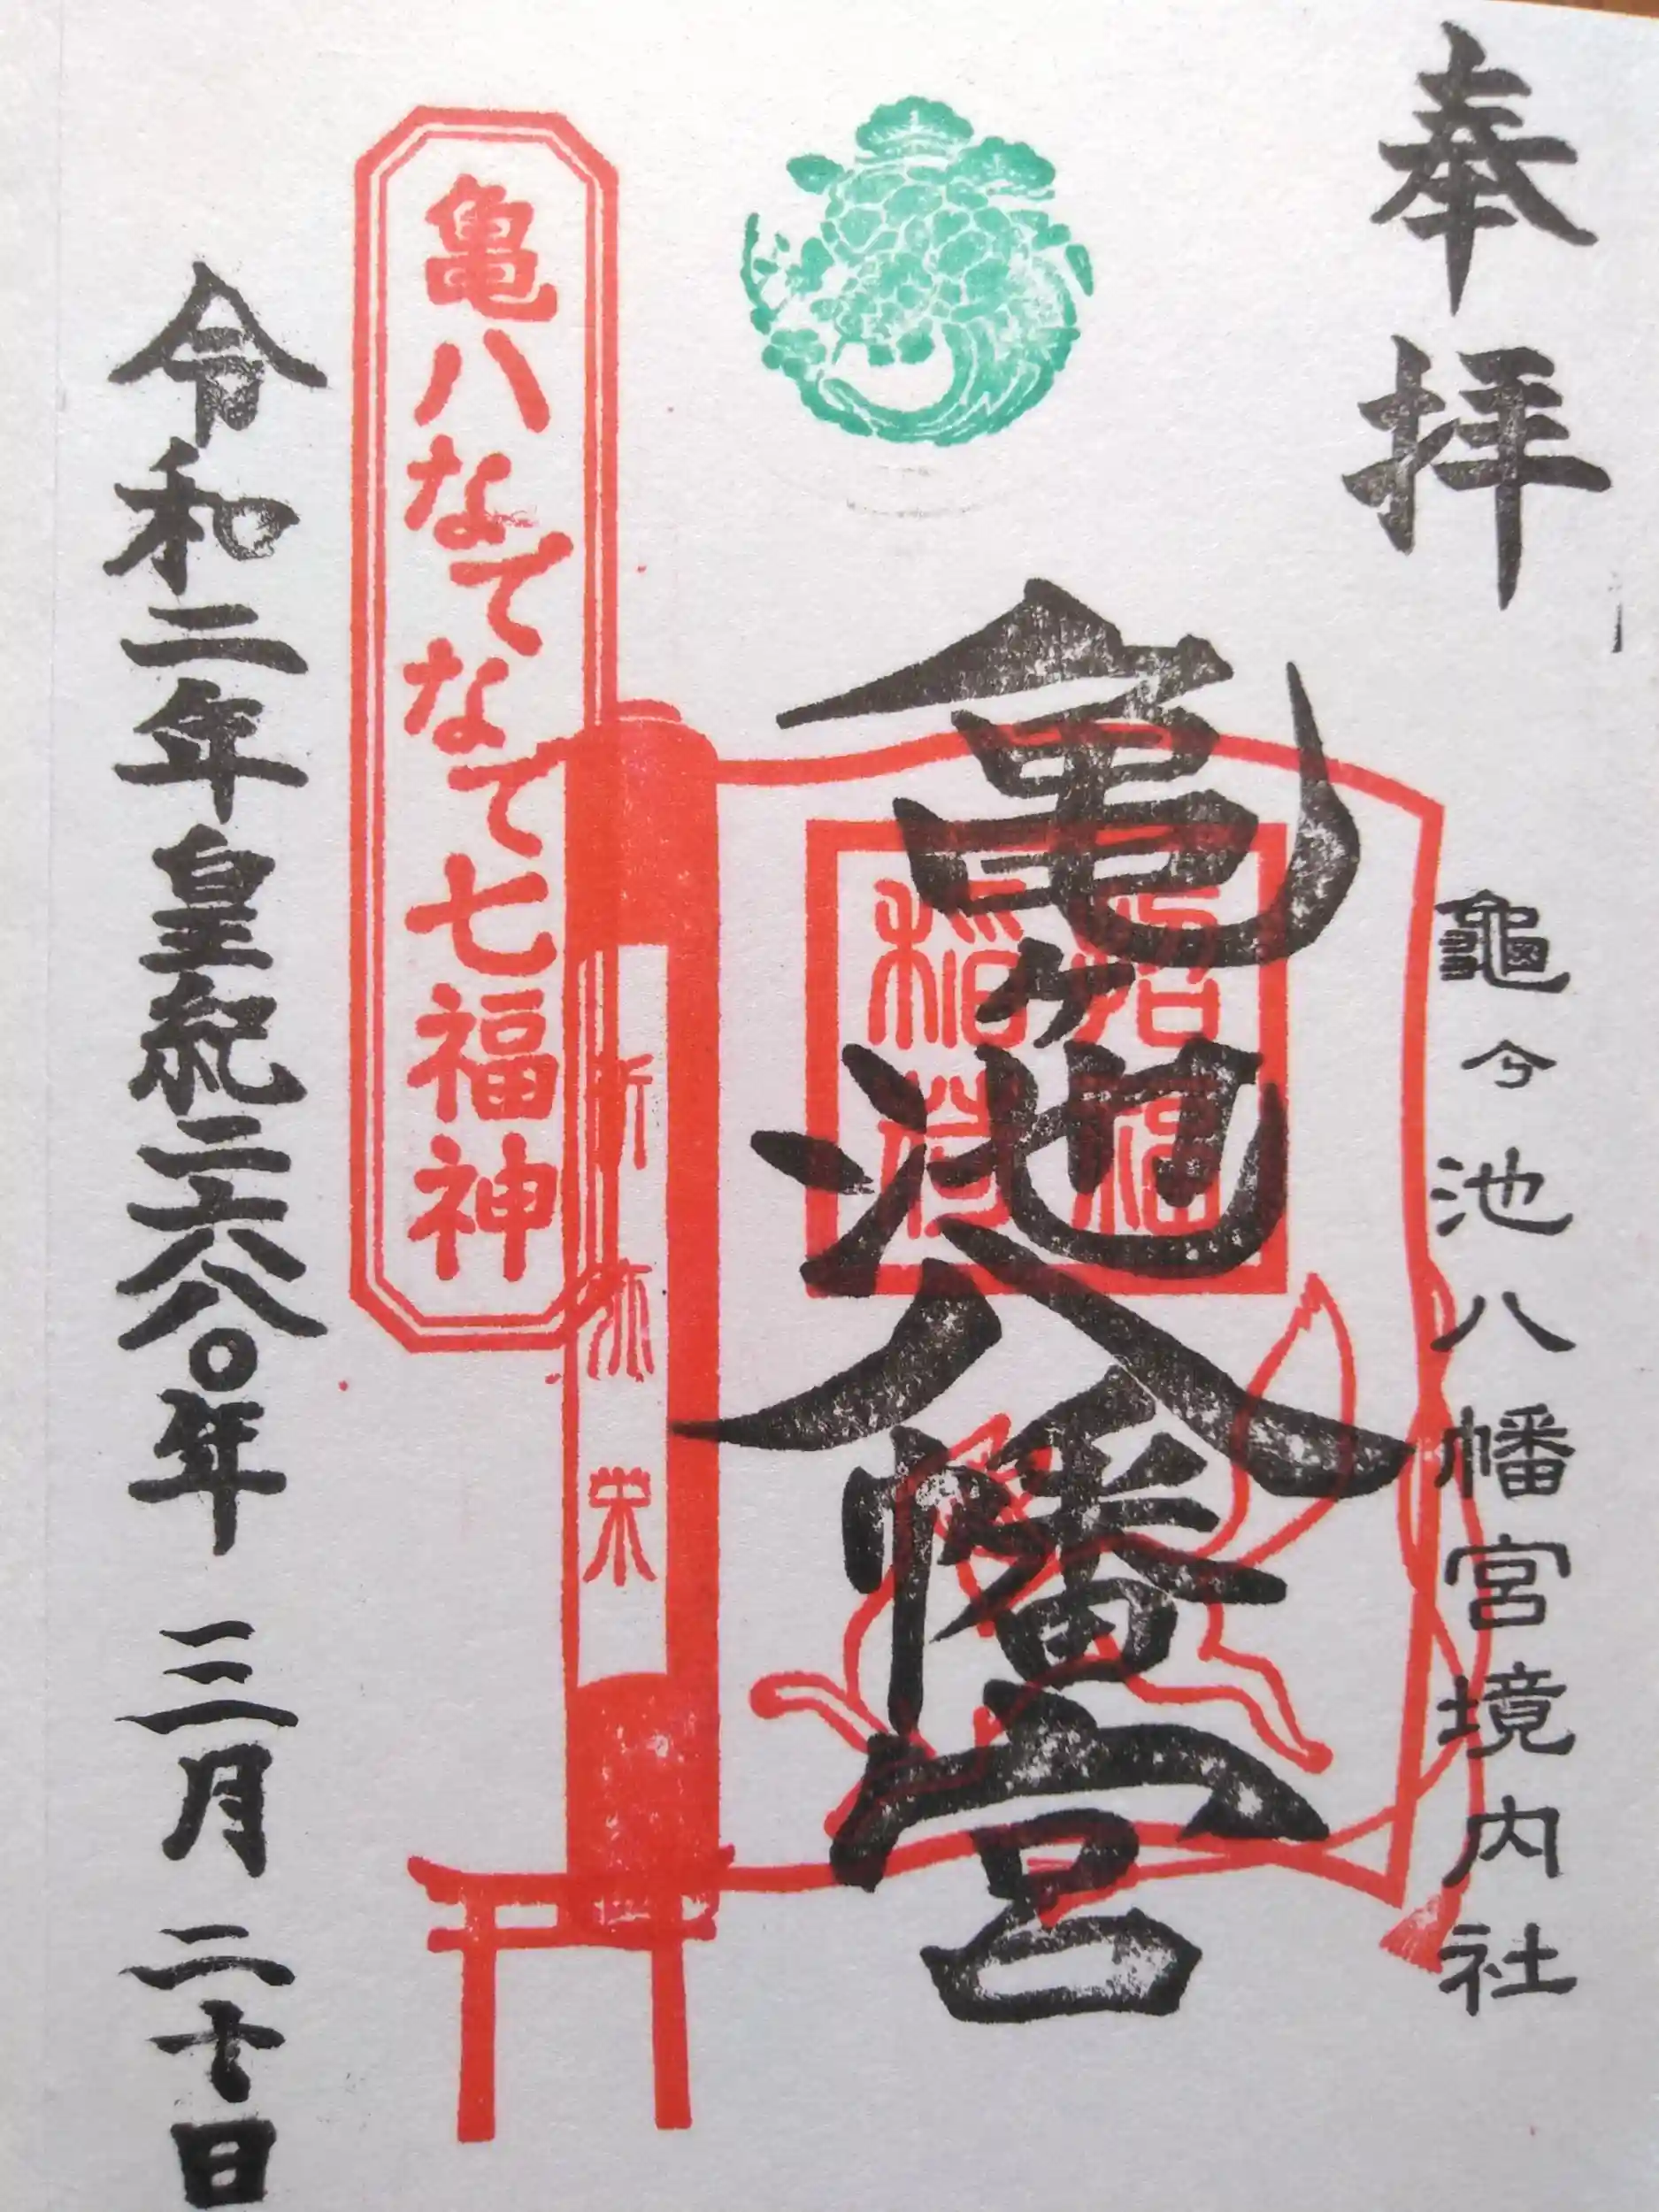 奉拝
龜ヶ池八幡宮境内社
亀ヶ池八幡宮
稲荷
亀八なてなて七福神
令和二年皇紀二六八〇年 三月 二十日